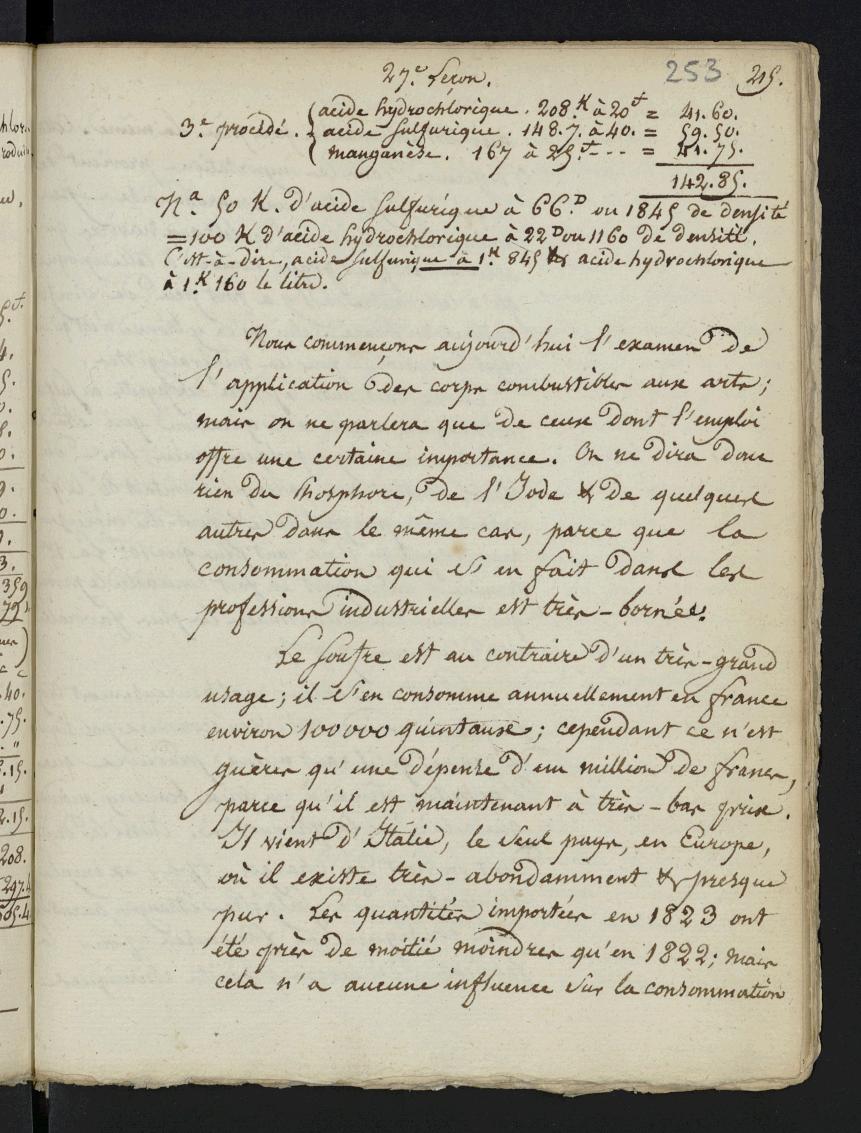 27.e Leçon. 253 215.
3.e procédé. { acide hydrochlorique . 208.K à 20ct = 41.60.
acide sulfurique . 148.7. à 40. = 59.50.
manganèse. 167 à 25.ct - - - = 41.75.
142.85.
N.a 50 K. d'acide sulfurique à 66.D ou 1845 de densité
= 100 K d'acide hydrochlorique à 22D ou 1160 de densité.
C'est-à-dire, acide sulfurique à 1.K 845 & acide hydrochlorique
à 1.K 160 le litre.
Nous commençons aujourd'hui l'examen de
l'application des corps combustibles aux arts ;
mais on ne parlera que de ceux dont l'emploi
offre une certaine importance. On ne dira donc
rien du Phosphore, de l'Iode & de quelques
autres dans le même cas, parce que la
consommation qui s'en fait dans les
professions industrielles est très-bornée.
Le Soufre est au contraire d'un très-grand
usage ; il s'en consomme annuellement en france
environ 100000 quintaux ; cependant ce n'est
guères qu'une dépense d'un million de francs,
parce qu'il est maintenant à très-bas prix.
Il vient d'Italie, le seul pays, en Europe,
où il existe très-abondamment & presque
pur. Les quantités importées en 1823 ont
été près de moitié moindres qu'en 1822 ; mais
cela n'a aucune influence sur la consommation